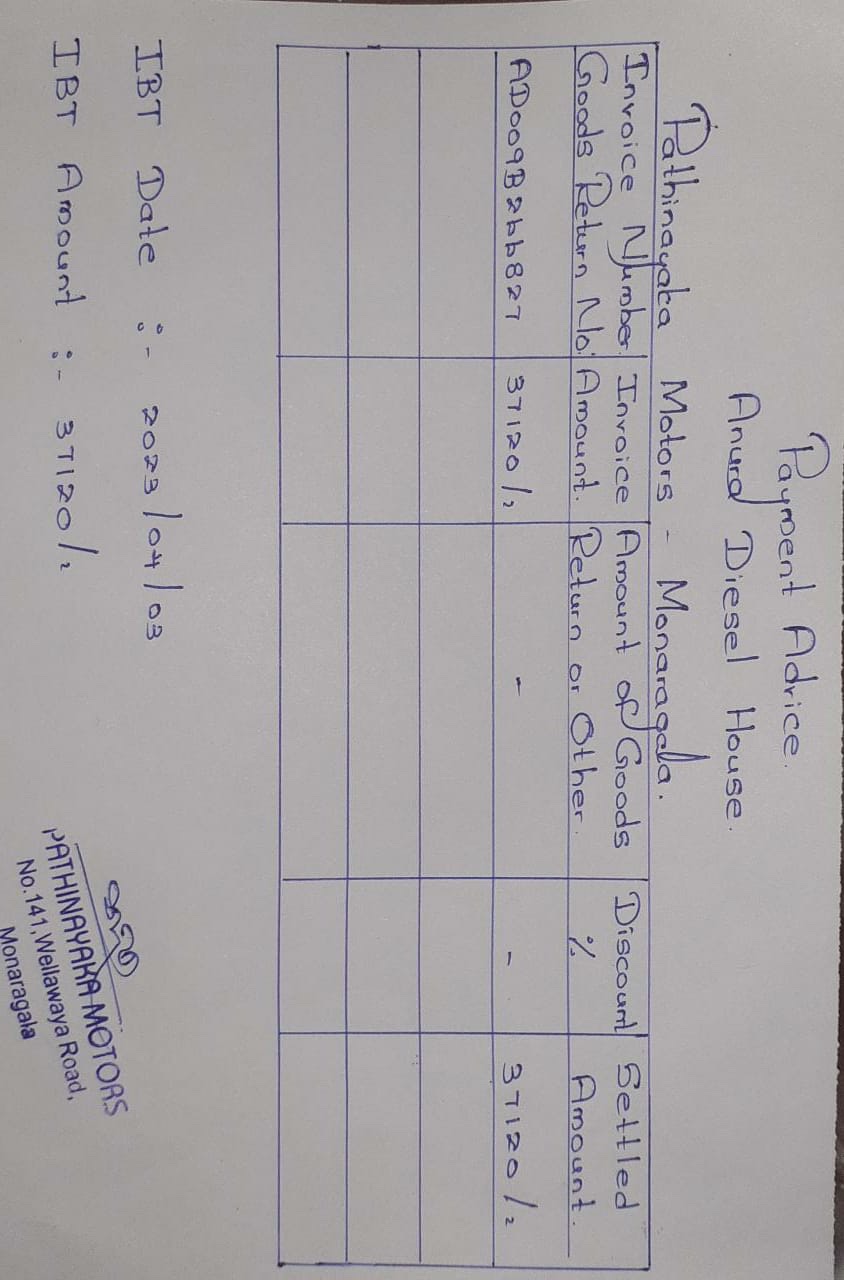 Payment Advice.
Anura Diesel House.
Pathinayaka Motors - Monaragala.
Invoice Number Invoice Amount of Goods Discount Settled
Goods Return No: Amount. Return or Other. % Amount.
37120/= - - 37120/=
IBT Date :- 2023/04/03
IBT Amount :- 37120/=
PATHINAYAKA MOTORS
No.141, Wellawaya Road,
Monaragala